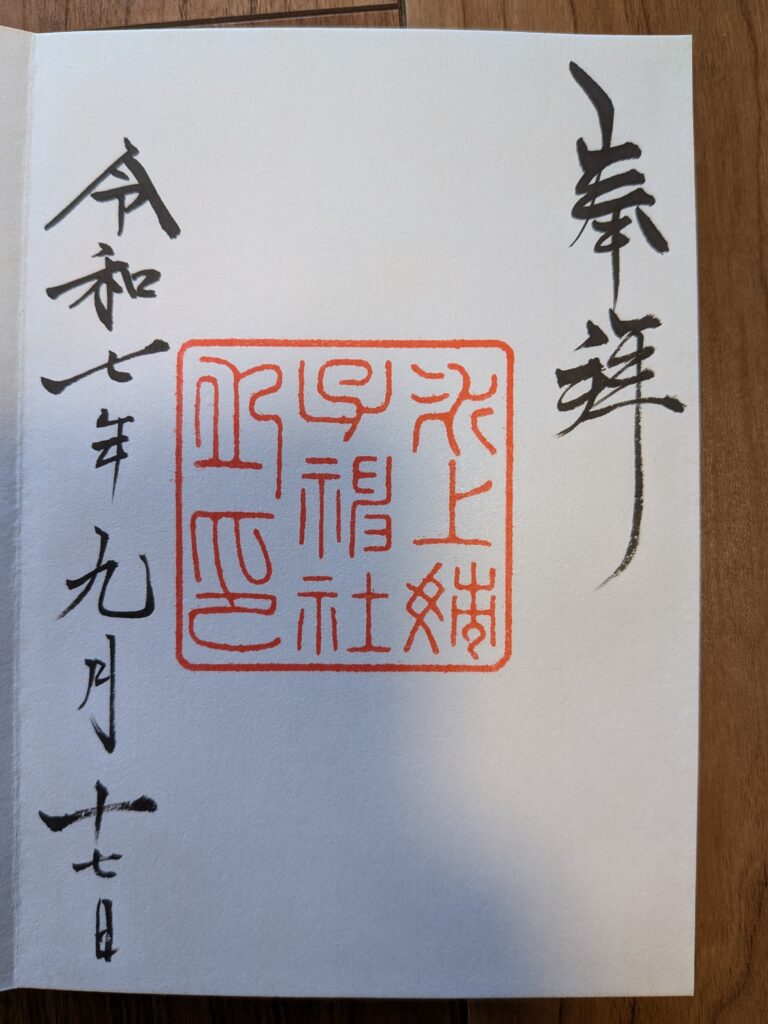 奉拝
氷上姉
子神社
之印
令和七年九月十七日